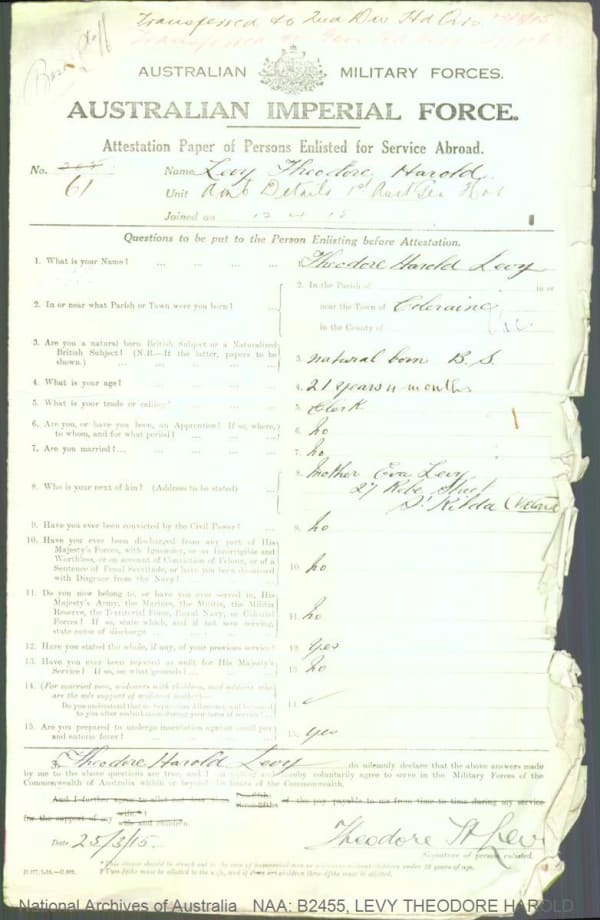 Transferred to 2nd Div Hd Qrs
Base Staff
AUSTRALIAN MILITARY FORCES.
AUSTRALIAN IMPERIAL FORCE.
Attestation Paper of Persons Enlisted for Service Abroad.
No. 61 Name Levy Theodore Harold
Unit Details 1st Aust Gen Hos
Joined on
Questions to be put to the Person Enlisting before Attestation.
1. What is your Name? ... ... ... ... Theodore Harold Levy
2. In or near what Parish or Town were you born? ... 2. In the Parish of in or
near the Town of Coleraine
in the County of Vic.
3. Are you a natural born British Subject or a Naturalized
British Subject? (N.B.—If the latter, papers to be
shown.) ... ... ... 3. natural born B.S.
4. What is your age? ... ... ... ... 4. 21 years 11 months
5. What is your trade or calling? ... ... ... 5. Clerk
6. Are you, or have you been, an Apprentice? If so, where,
to whom, and for what period? ... ... ... 6. no
7. Are you married? ... ... ... ... 7. no
8. Who is your next of kin? (Address to be stated) ... 8. Mother Eva Levy
27 Robe Street
St Kilda Victoria
9. Have you ever been convicted by the Civil Power? ... 9. no
10. Have you ever been discharged from any part of His
Majesty's Forces, with Ignominy, or as Incorrigible and
Worthless, or on account of Conviction of Felony, or of a
Sentence of Penal Servitude, or have you been dismissed
with Disgrace from the Navy? ... 10. no
11. Do you now belong to, or have you ever served in, His
Majesty's Army, the Marines, the Militia, the Militia
Reserve, the Territorial Force, Royal Navy, or Colonial
Forces? If so, state which, and if not now serving,
state cause of discharge ... 11. no
12. Have you stated the whole, if any, of your previous service? 12. Yes
13. Have you ever been rejected as unfit for His Majesty's
Service? If so, on what grounds? ... 13. no
14. (For married men, widowers with children, and soldiers who
are the sole support of widowed mother—
Do you understand that no separation allowance will be issued
to you after embarkation during your term of service? 14. ✓
15. Are you prepared to undergo inoculation against small pox
and enteric fever? 15. yes
I, Theodore Harold Levy do solemnly declare that the above answers made
by me to the above questions are true, and I am willing and hereby voluntarily agree to serve in the Military Forces of the
Commonwealth of Australia within or beyond the limits of the Commonwealth.
And I further agree to allot not less than of the pay payable to me from time to time during my service
for the support of my wife
wife and children.
Date 25/3/15. Theodore H Levy
Signature of person enlisted.
National Archives of Australia NAA: B2455, LEVY THEODORE HAROLD